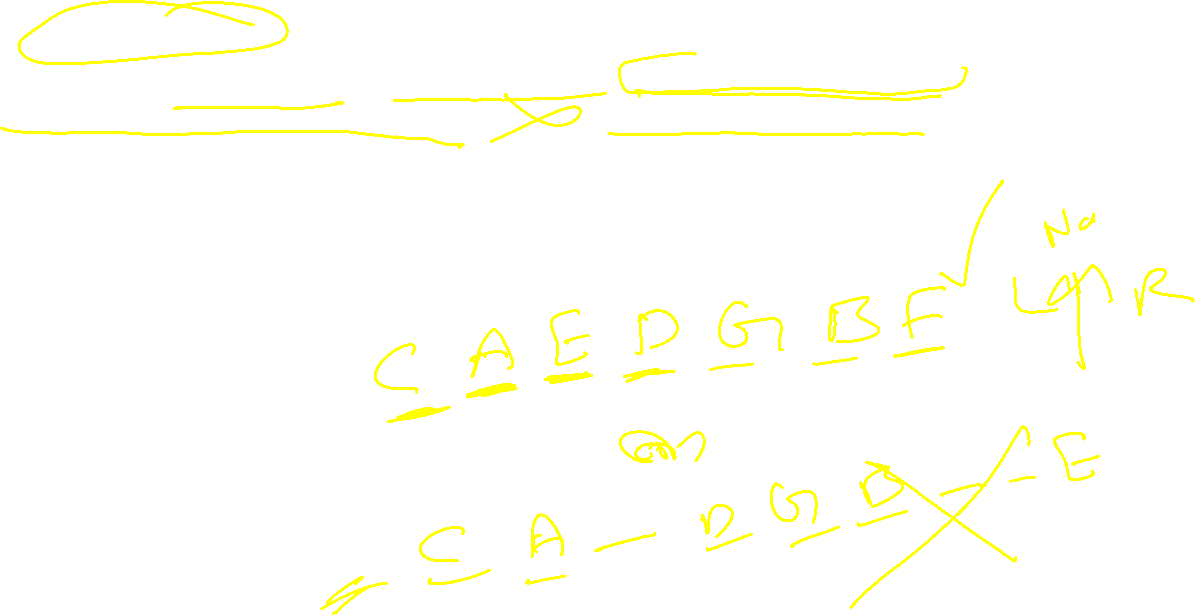 No
L R
C A E D G B F ✓
or
C A — D G B — — E